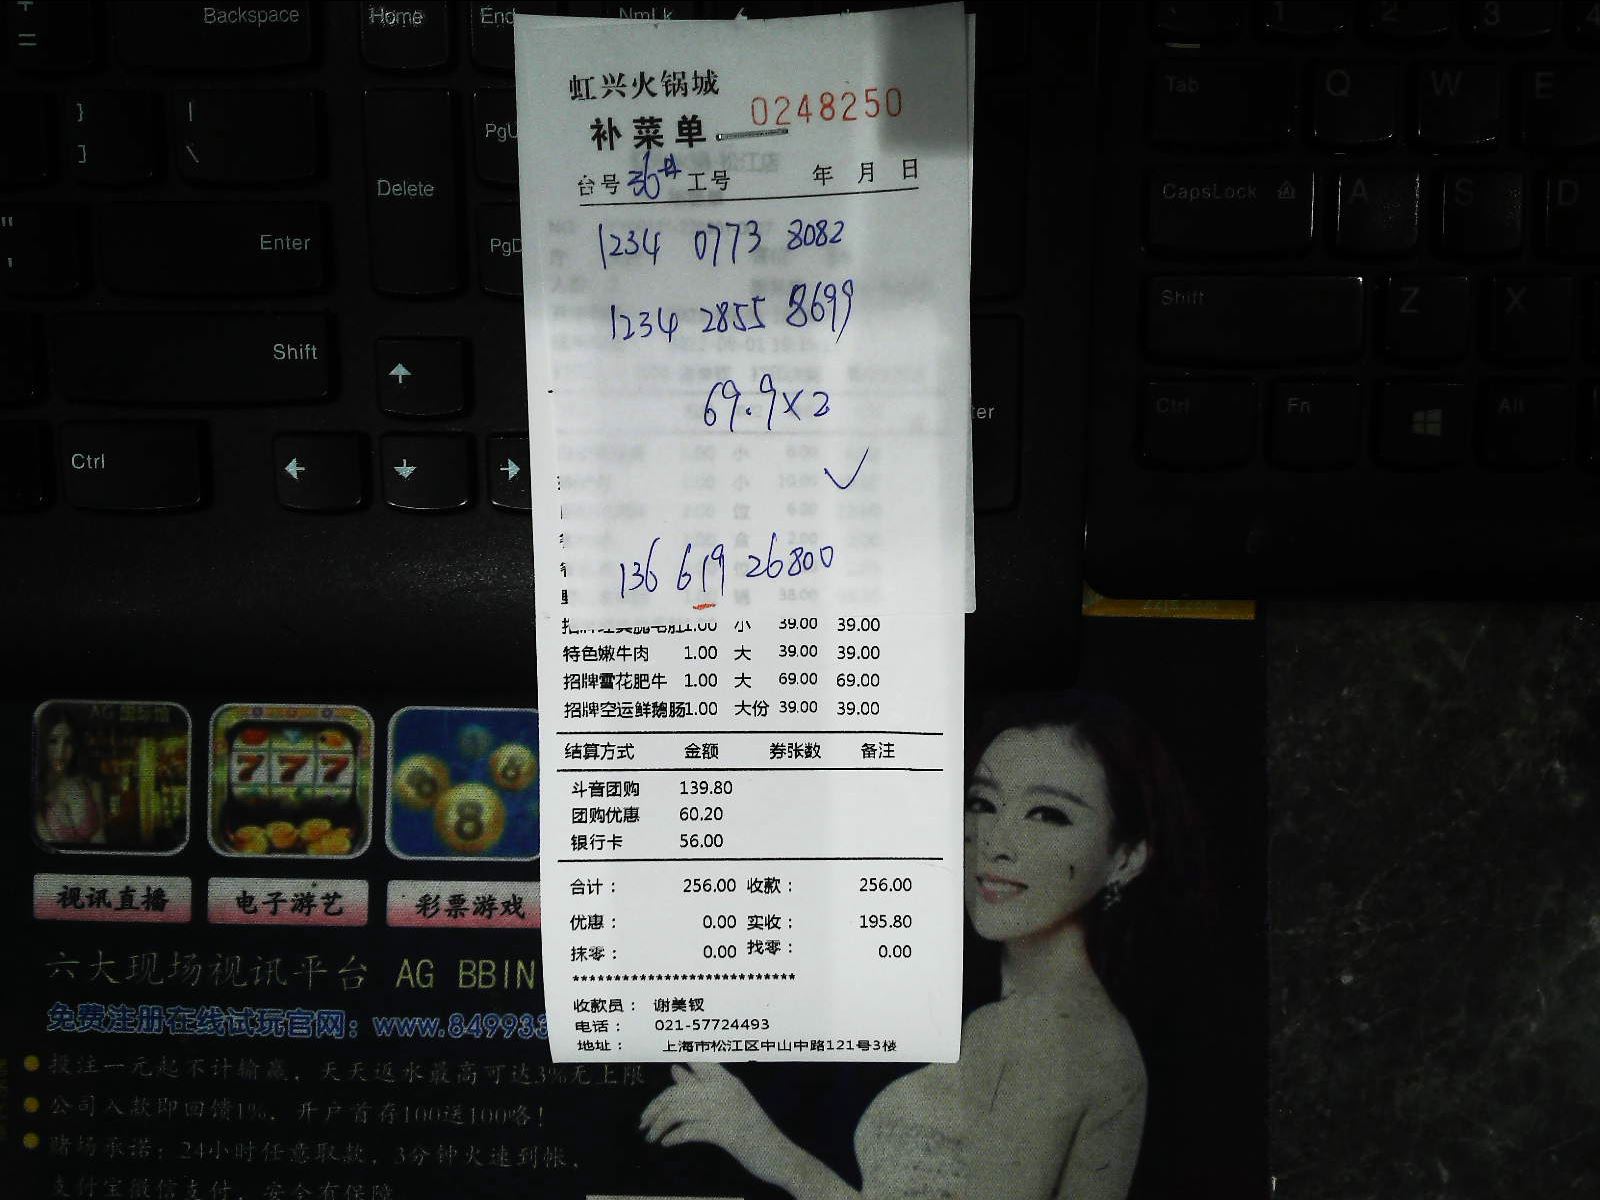 Backspace
Home
End
NmLk
}
]
|
\
PgU
Delete
"
'
Enter
PgD
Shift
Ctrl
Tab
Q
W
E
1
2
3
4
CapsLock
A
S
D
Shift
Z
X
Ctrl
Fn
Alt
虹兴火锅城
0248250
补菜单
台号 36# 工号 年 月 日
1234 0773 8082
1234 2855 8699
69.9×2
136 619 26800
1.00 小 39.00 39.00
特色嫩牛肉 1.00 大 39.00 39.00
招牌雪花肥牛 1.00 大 69.00 69.00
招牌空运鲜鹅肠1.00 大份 39.00 39.00
结算方式 金额 券张数 备注
斗音团购 139.80
团购优惠 60.20
银行卡 56.00
合计： 256.00 收款： 256.00
优惠： 0.00 实收： 195.80
抹零： 0.00 找零： 0.00
***************************
收款员： 谢美钗
电话： 021-57724493
地址： 上海市松江区中山中路121号3楼
777
8
6
8
视讯直播
电子游艺
彩票游戏
六大现场视讯平台 AG BBIN
免费注册在线试玩官网：www.849933
投注一元起不计输赢，天天返水最高可达3%无上限
公司入款即回馈1%，开户首存100送100咯！
赌场承诺：24小时任意取款，3分钟火速到帐，
支付宝微信支付，安全有保障